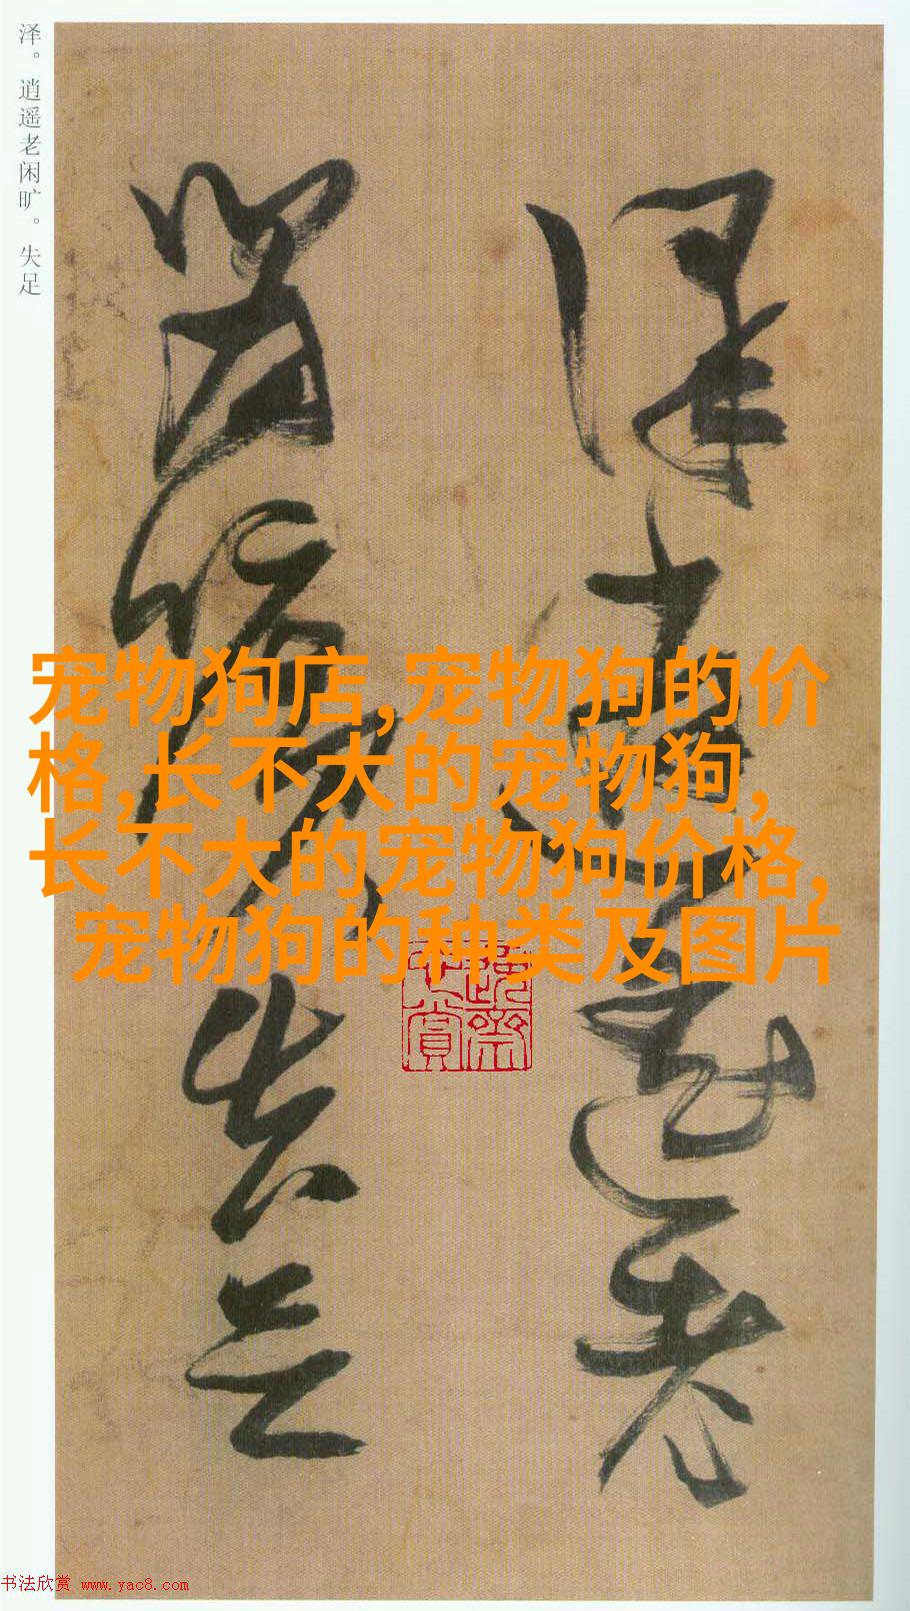 泽。逍遥老闲旷。失足
泽逍遥老
闲旷失足
宠物狗店,宠物狗的价
格,长不大的宠物狗,
长不大的宠物狗价格,
宠物狗的种类及图片
书法欣赏 www.yac8.com